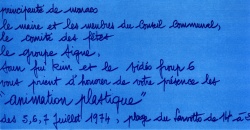 principauté de monaco
le maire et les membres du conseil communal,
le comité des fêtes
le groupe signe,
et le vidéo group 6
vous prient d'honorer de votre présence les
"animation plastique"
des 5, 6, 7 juillet 1974, plage du larvotto de 14 à